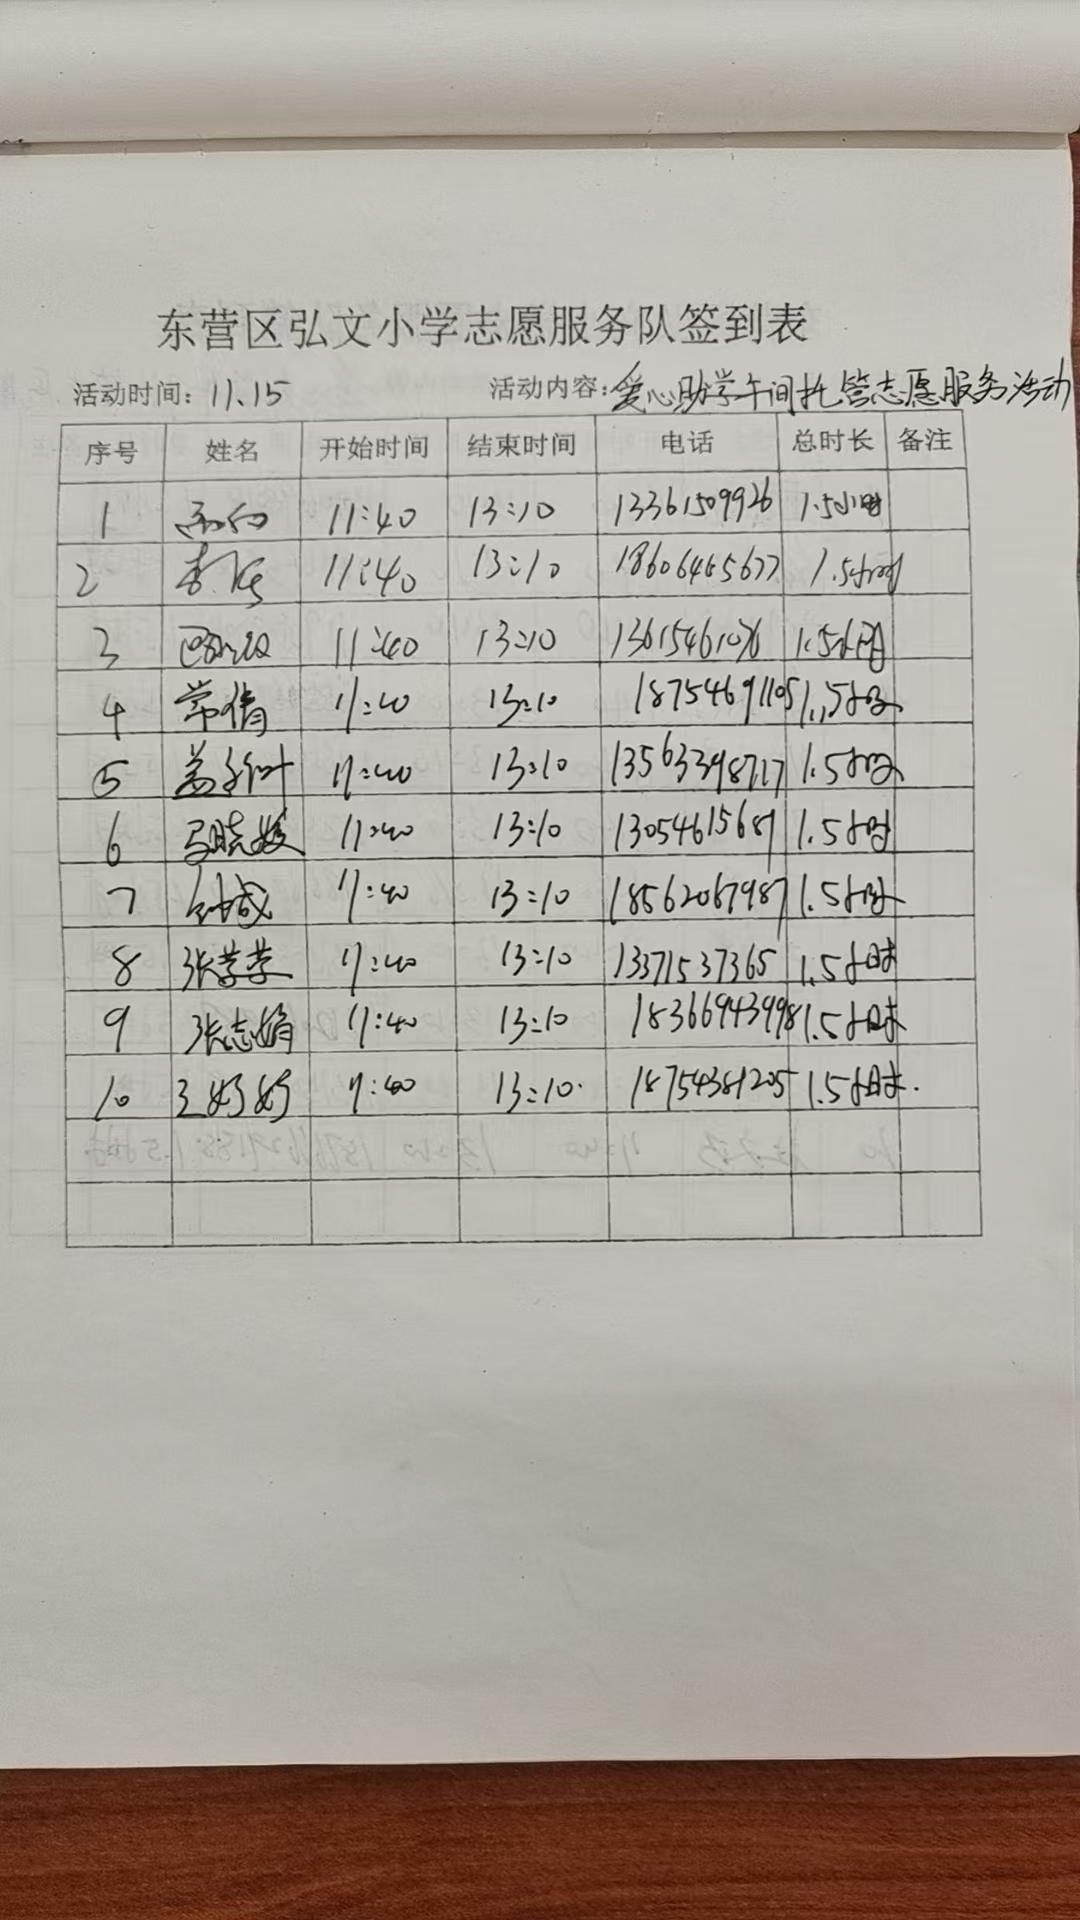 东营区弘文小学志愿服务队签到表
活动时间：11.15 活动内容：爱心助学午间托管志愿服务活动
序号 姓名 开始时间 结束时间 电话 总时长 备注
1 11:40 13:10 13361509926 1.5小时
2 11:40 13:10 1.5小时
3 11:40 13:10 1.5小时
4 常倩 11:40 13:10 18754691105 1.5小时
5 11:40 13:10 13563398717 1.5小时
6 马晓媛 11:40 13:10 1.5小时
7 11:40 13:10 18562067987 1.5小时
8 张学学 11:40 13:10 13371537365 1.5小时
9 张志娟 11:40 13:10 18366943998 1.5小时
10 王好好 11:40 13:10 18754381205 1.5小时.